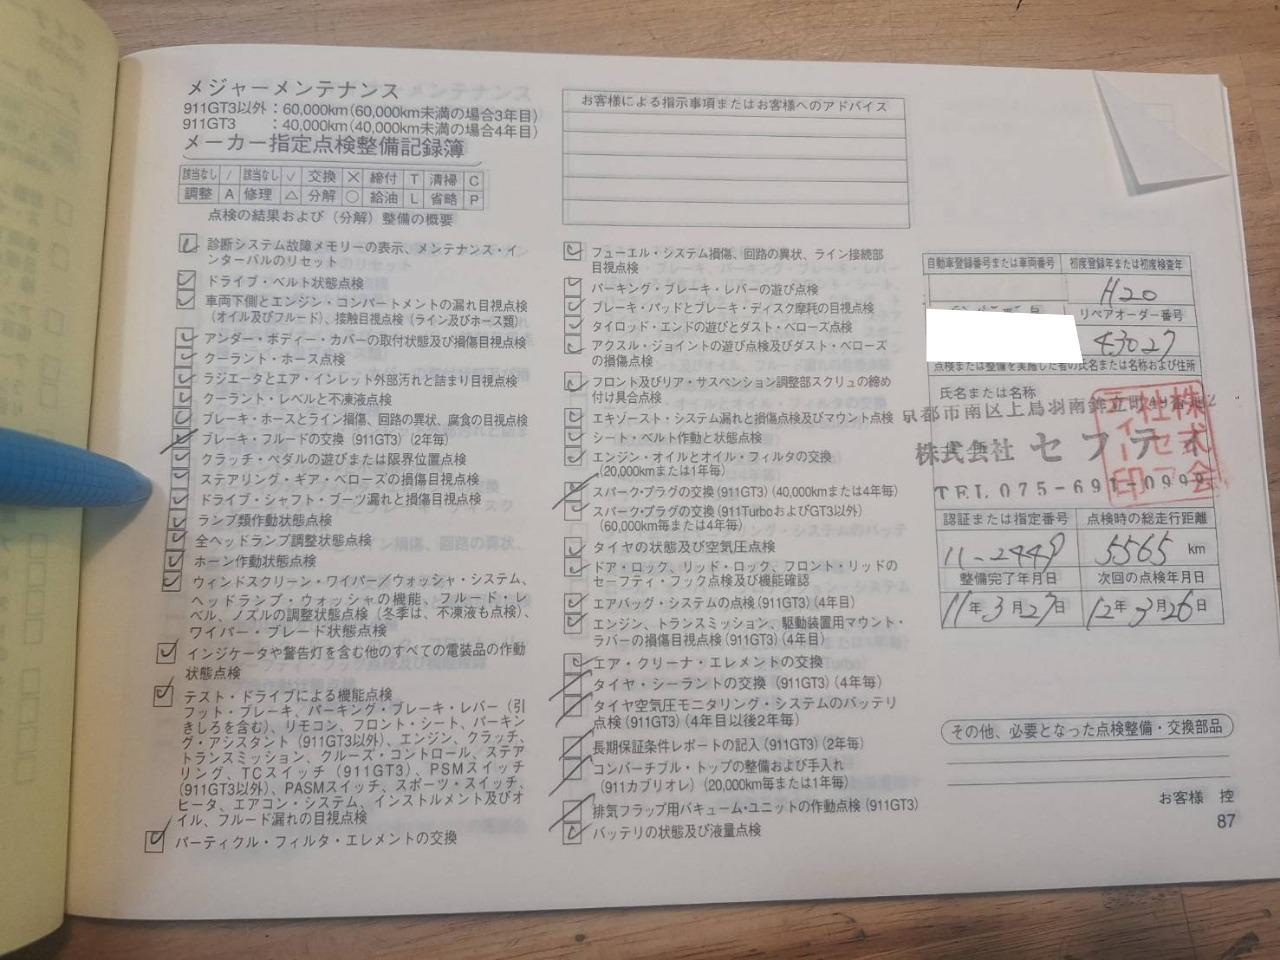 メジャーメンテナンス
911GT3以外：60,000km(60,000km未満の場合3年目)
911GT3　　：40,000km(40,000km未満の場合4年目)
メーカー指定点検整備記録簿
該当なし / 該当なし ✓ 交換 × 締付 T 清掃 C
調整 A 修理 △ 分解 ○ 給油 L 省略 P
点検の結果および（分解）整備の概要
診断システム故障メモリーの表示、メンテナンス・イ
ンターバルのリセット
ドライブ・ベルト状態点検
車両下側とエンジン・コンパートメントの漏れ目視点検
（オイル及びフルード）、接触目視点検（ライン及びホース類）
アンダー・ボディー・カバーの取付状態及び損傷目視点検
クーラント・ホース点検
ラジエータとエア・インレット外部汚れと詰まり目視点検
クーラント・レベルと不凍液点検
ブレーキ・ホースとライン損傷、回路の異状、腐食の目視点検
ブレーキ・フルードの交換 (911GT3) (2年毎)
クラッチ・ペダルの遊びまたは限界位置点検
ステアリング・ギア・ベローズの損傷目視点検
ドライブ・シャフト・ブーツ漏れと損傷目視点検
ランプ類作動状態点検
全ヘッドランプ調整状態点検
ホーン作動状態点検
ウィンドスクリーン・ワイパー／ウォッシャ・システム、
ヘッドランプ・ウォッシャの機能、フルード・レ
ベル、ノズルの調整状態点検（冬季は、不凍液も点検）、
ワイパー・ブレード状態点検
インジケータや警告灯を含む他のすべての電装品の作動
状態点検
テスト・ドライブによる機能点検
フット・ブレーキ、パーキング・ブレーキ・レバー（引
きしろを含む）、リモコン、フロント・シート、パーキン
グ・アシスタント (911GT3以外)、エンジン、クラッチ、
トランスミッション、クルーズ・コントロール、ステア
リング、TCスイッチ (911GT3)、PSMスイッチ
(911GT3以外)、PASMスイッチ、スポーツ・スイッチ、
ヒータ、エアコン・システム、インストルメント及びオ
イル、フルード漏れの目視点検
パーティクル・フィルタ・エレメントの交換
お客様による指示事項またはお客様へのアドバイス
フューエル・システム損傷、回路の異状、ライン接続部
目視点検
パーキング・ブレーキ・レバーの遊び点検
ブレーキ・パッドとブレーキ・ディスク摩耗の目視点検
タイロッド・エンドの遊びとダスト・ベローズ点検
アクスル・ジョイントの遊び点検及びダスト・ベローズ
の損傷点検
フロント及びリア・サスペンション調整部スクリュの締め
付け具合点検
エキゾースト・システム漏れと損傷点検及びマウント点検
シート・ベルト作動と状態点検
エンジン・オイルとオイル・フィルタの交換
(20,000kmまたは1年毎)
スパーク・プラグの交換 (911GT3) (40,000kmまたは4年毎)
スパーク・プラグの交換 (911TurboおよびGT3以外)
(60,000km毎または4年毎)
タイヤの状態及び空気圧点検
ドア・ロック、リッド・ロック、フロント・リッドの
セーフティ・フック点検及び機能確認
エアバッグ・システムの点検 (911GT3) (4年目)
エンジン、トランスミッション、駆動装置用マウント・
ラバーの損傷目視点検 (911GT3) (4年目)
エア・クリーナ・エレメントの交換
タイヤ・シーラントの交換 (911GT3) (4年毎)
タイヤ空気圧モニタリング・システムのバッテリ
点検 (911GT3) (4年目以後2年毎)
長期保証条件レポートの記入 (911GT3) (2年毎)
コンバーチブル・トップの整備および手入れ
(911カブリオレ) (20,000km毎または1年毎)
排気フラップ用バキューム・ユニットの作動点検 (911GT3)
バッテリの状態及び液量点検
自動車登録番号または車両番号 初度登録年または初度検査年
H20
リペアオーダー番号
43027
点検または整備を実施した者の氏名または名称および住所
氏名または名称
京都市南区上鳥羽南鉾立町
株式会社 セフテオ
TEL 075-691-0999
認証または指定番号 点検時の総走行距離
11-2449 5565 km
整備完了年月日 次回の点検年月日
11年3月27日 12年3月26日
その他、必要となった点検整備・交換部品
お客様 控
87